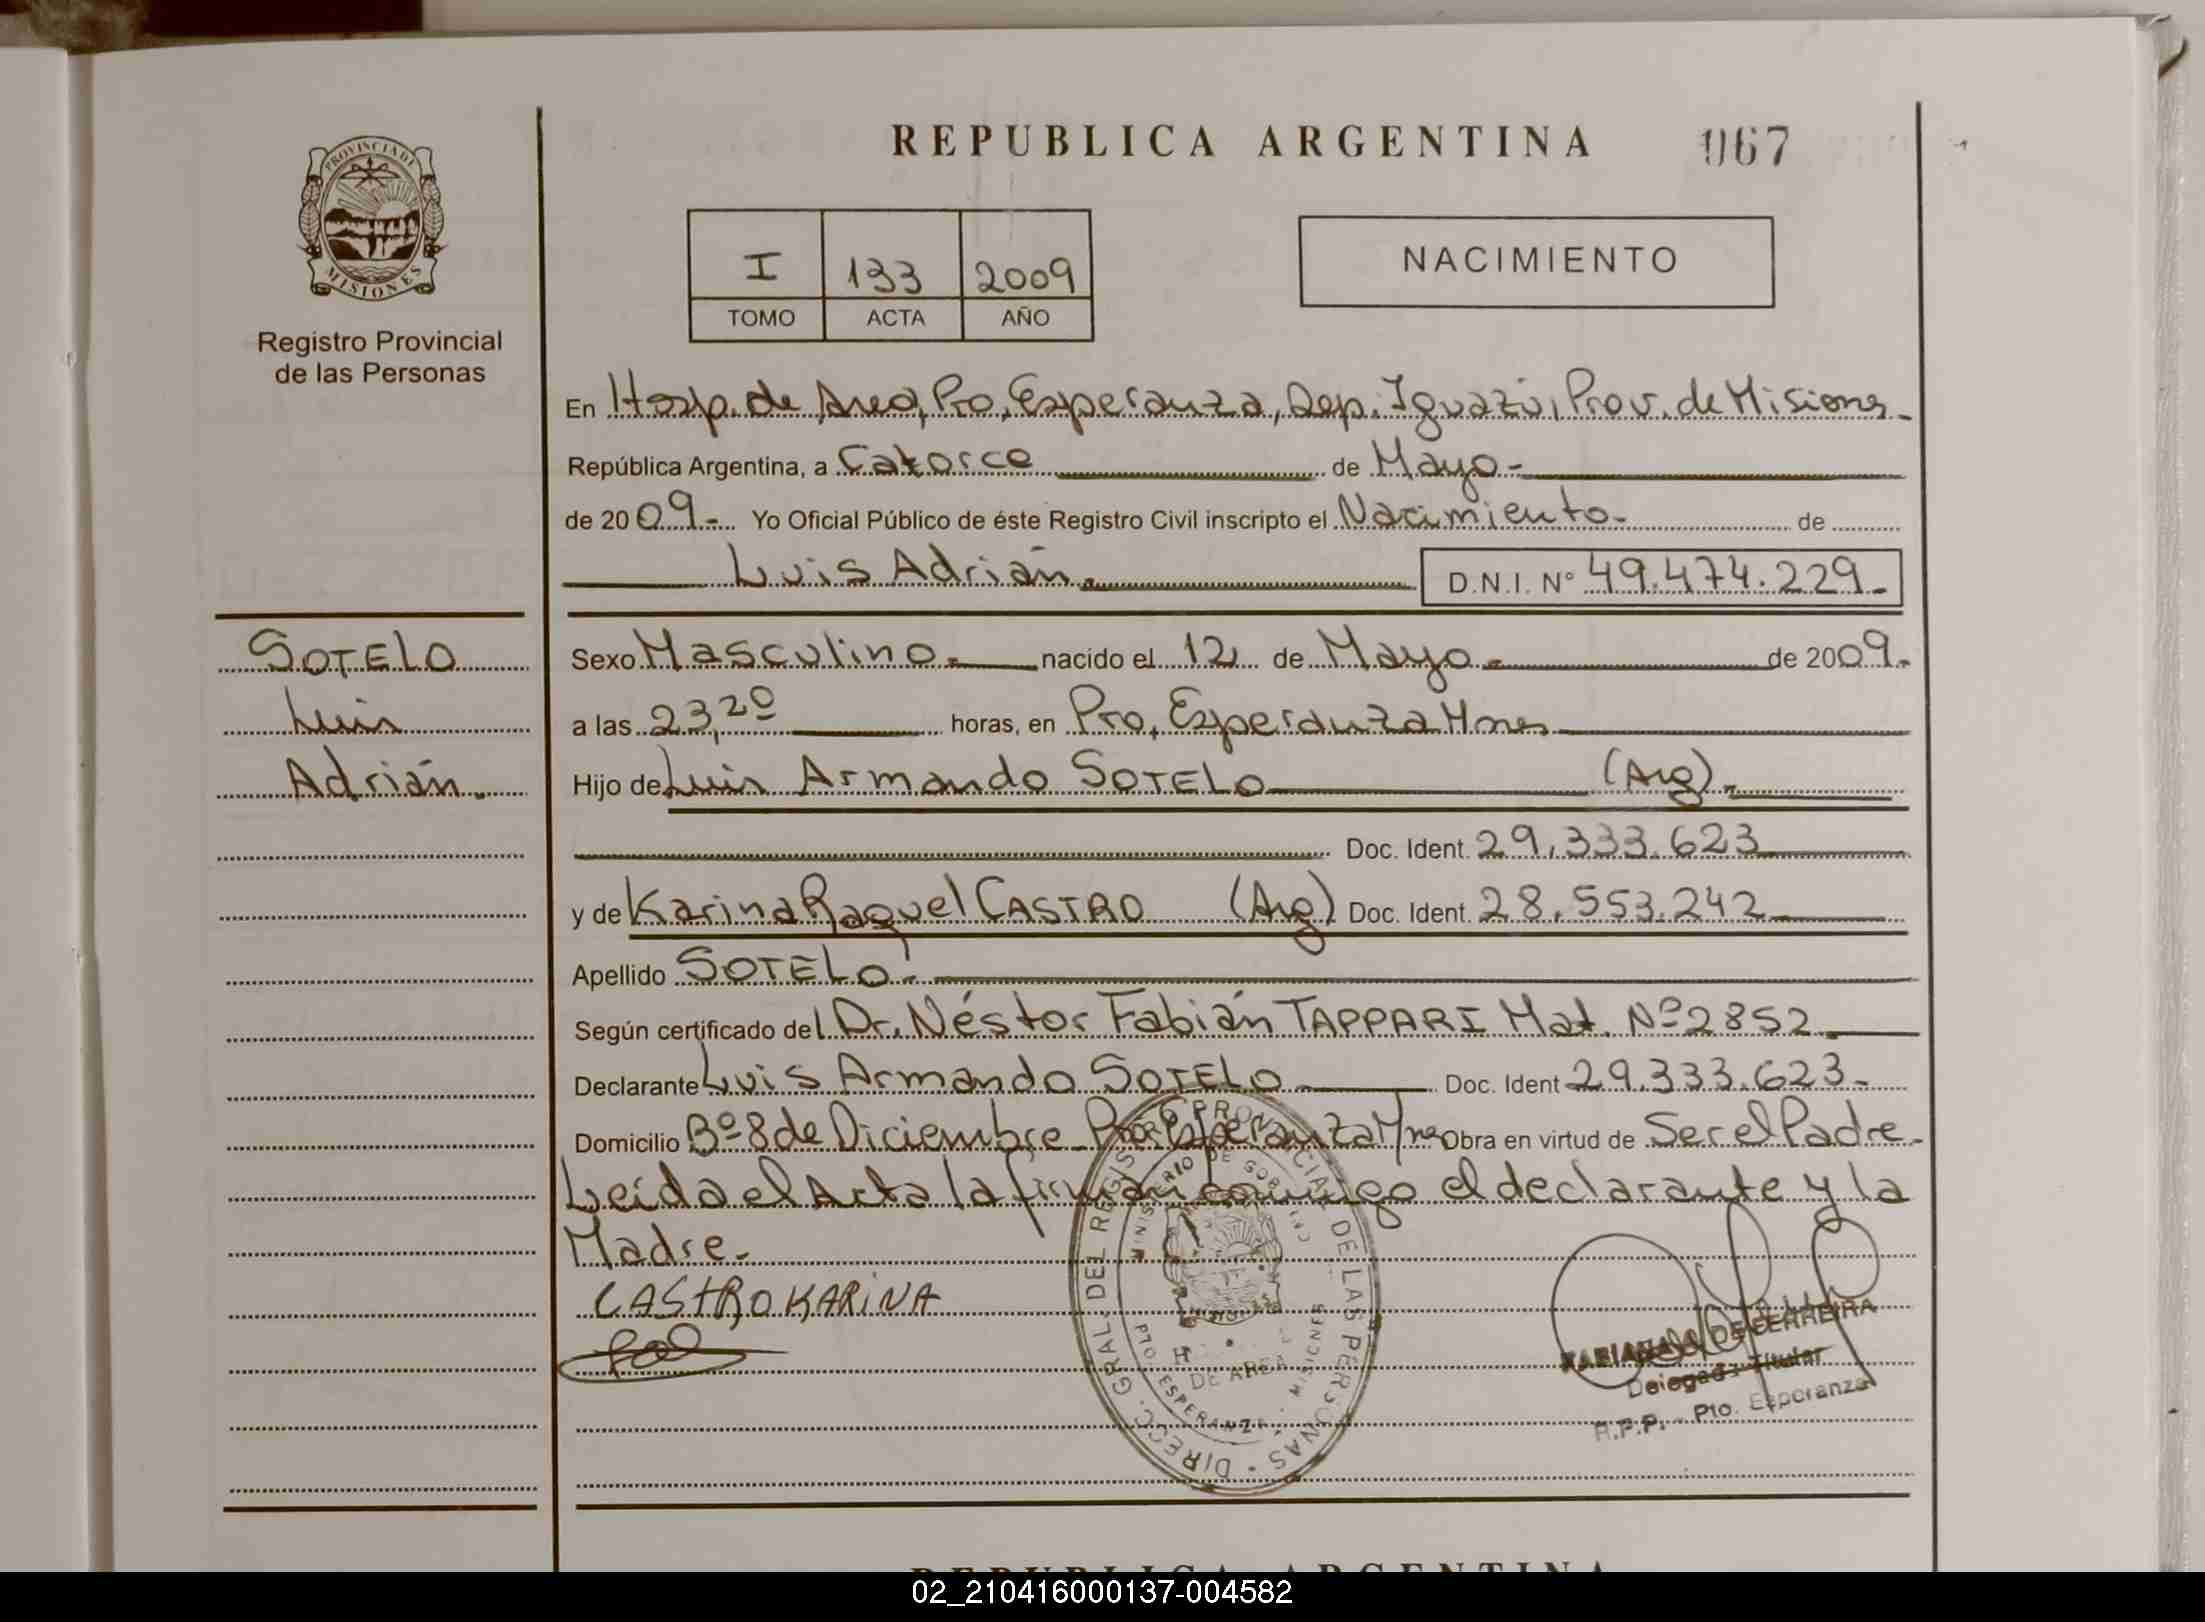 REPUBLICA ARGENTINA
067
PROVINCIA DE
MISIONES
Registro Provincial
de las Personas
I 133 2009
TOMO ACTA AÑO
NACIMIENTO
En Hosp. de Area, Pto, Esperanza, Dep. Iguazú, Prov. de Misiones
República Argentina, a Catorce de Mayo-
de 2009.- Yo Oficial Público de éste Registro Civil inscripto el Nacimiento- de
Luis Adrián.
D.N.I. N° 49.474.229-
SOTELO
Luis
Adrián.
Sexo Masculino.- nacido el 12 de Mayo.- de 2009.-
a las 23,20 horas, en Pto, Esperanza Mnes
Hijo de Luis Armando SOTELO (Arg).-
Doc. Ident. 29.333.623
y de Karina Raquel CASTRO (Arg) Doc. Ident. 28.553.242
Apellido SOTELO.-
Según certificado del Dr. Néstor Fabián TAPPARI Mat. Nº 2852.
Declarante Luis Armando SOTELO Doc. Ident 29.333.623-
Domicilio Bº 8 de Diciembre Pto, Esperanza Mnes Obra en virtud de Ser el Padre-
Leída el Acta la firman conmigo el declarante y la
Madre.-
CASTRO KARINA
DIRECC. GRAL. DEL REGISTRO PROVINCIAL DE LAS PERSONAS
MINISTERIO DE GOBIERNO
DE AREA
PTO. ESPERANZA - MISIONES
DE FERREIRA
Delegada Titular
R.P.P. - Pto. Esperanza
REPUBLICA ARGENTINA
02_210416000137-004582